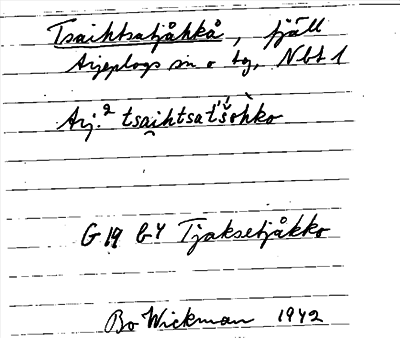 Tsaihtsatjåhkå, fjäll
Arjeplogs sn o tg, Nbt 1
Arj.² tsai̯htsat´šòhko
G 19 b4 Tjaksetjåkko
Bo Wickman 1942